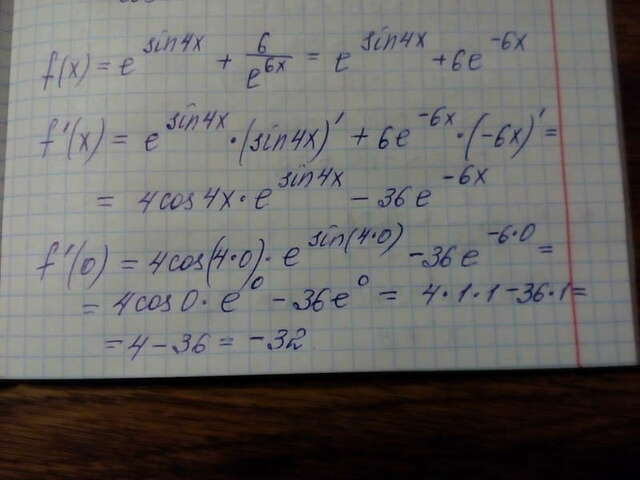 f(x) = e^{sin4x} + \frac{6}{e^{6x}} = e^{sin4x} + 6e^{-6x}
f'(x) = e^{sin4x} · (sin4x)' + 6e^{-6x} · (-6x)' =
= 4cos4x · e^{sin4x} - 36e^{-6x}
f'(0) = 4cos(4·0) · e^{sin(4·0)} - 36e^{-6·0} =
= 4cos0 · e^0 - 36e^0 = 4·1·1 - 36·1 =
= 4 - 36 = -32